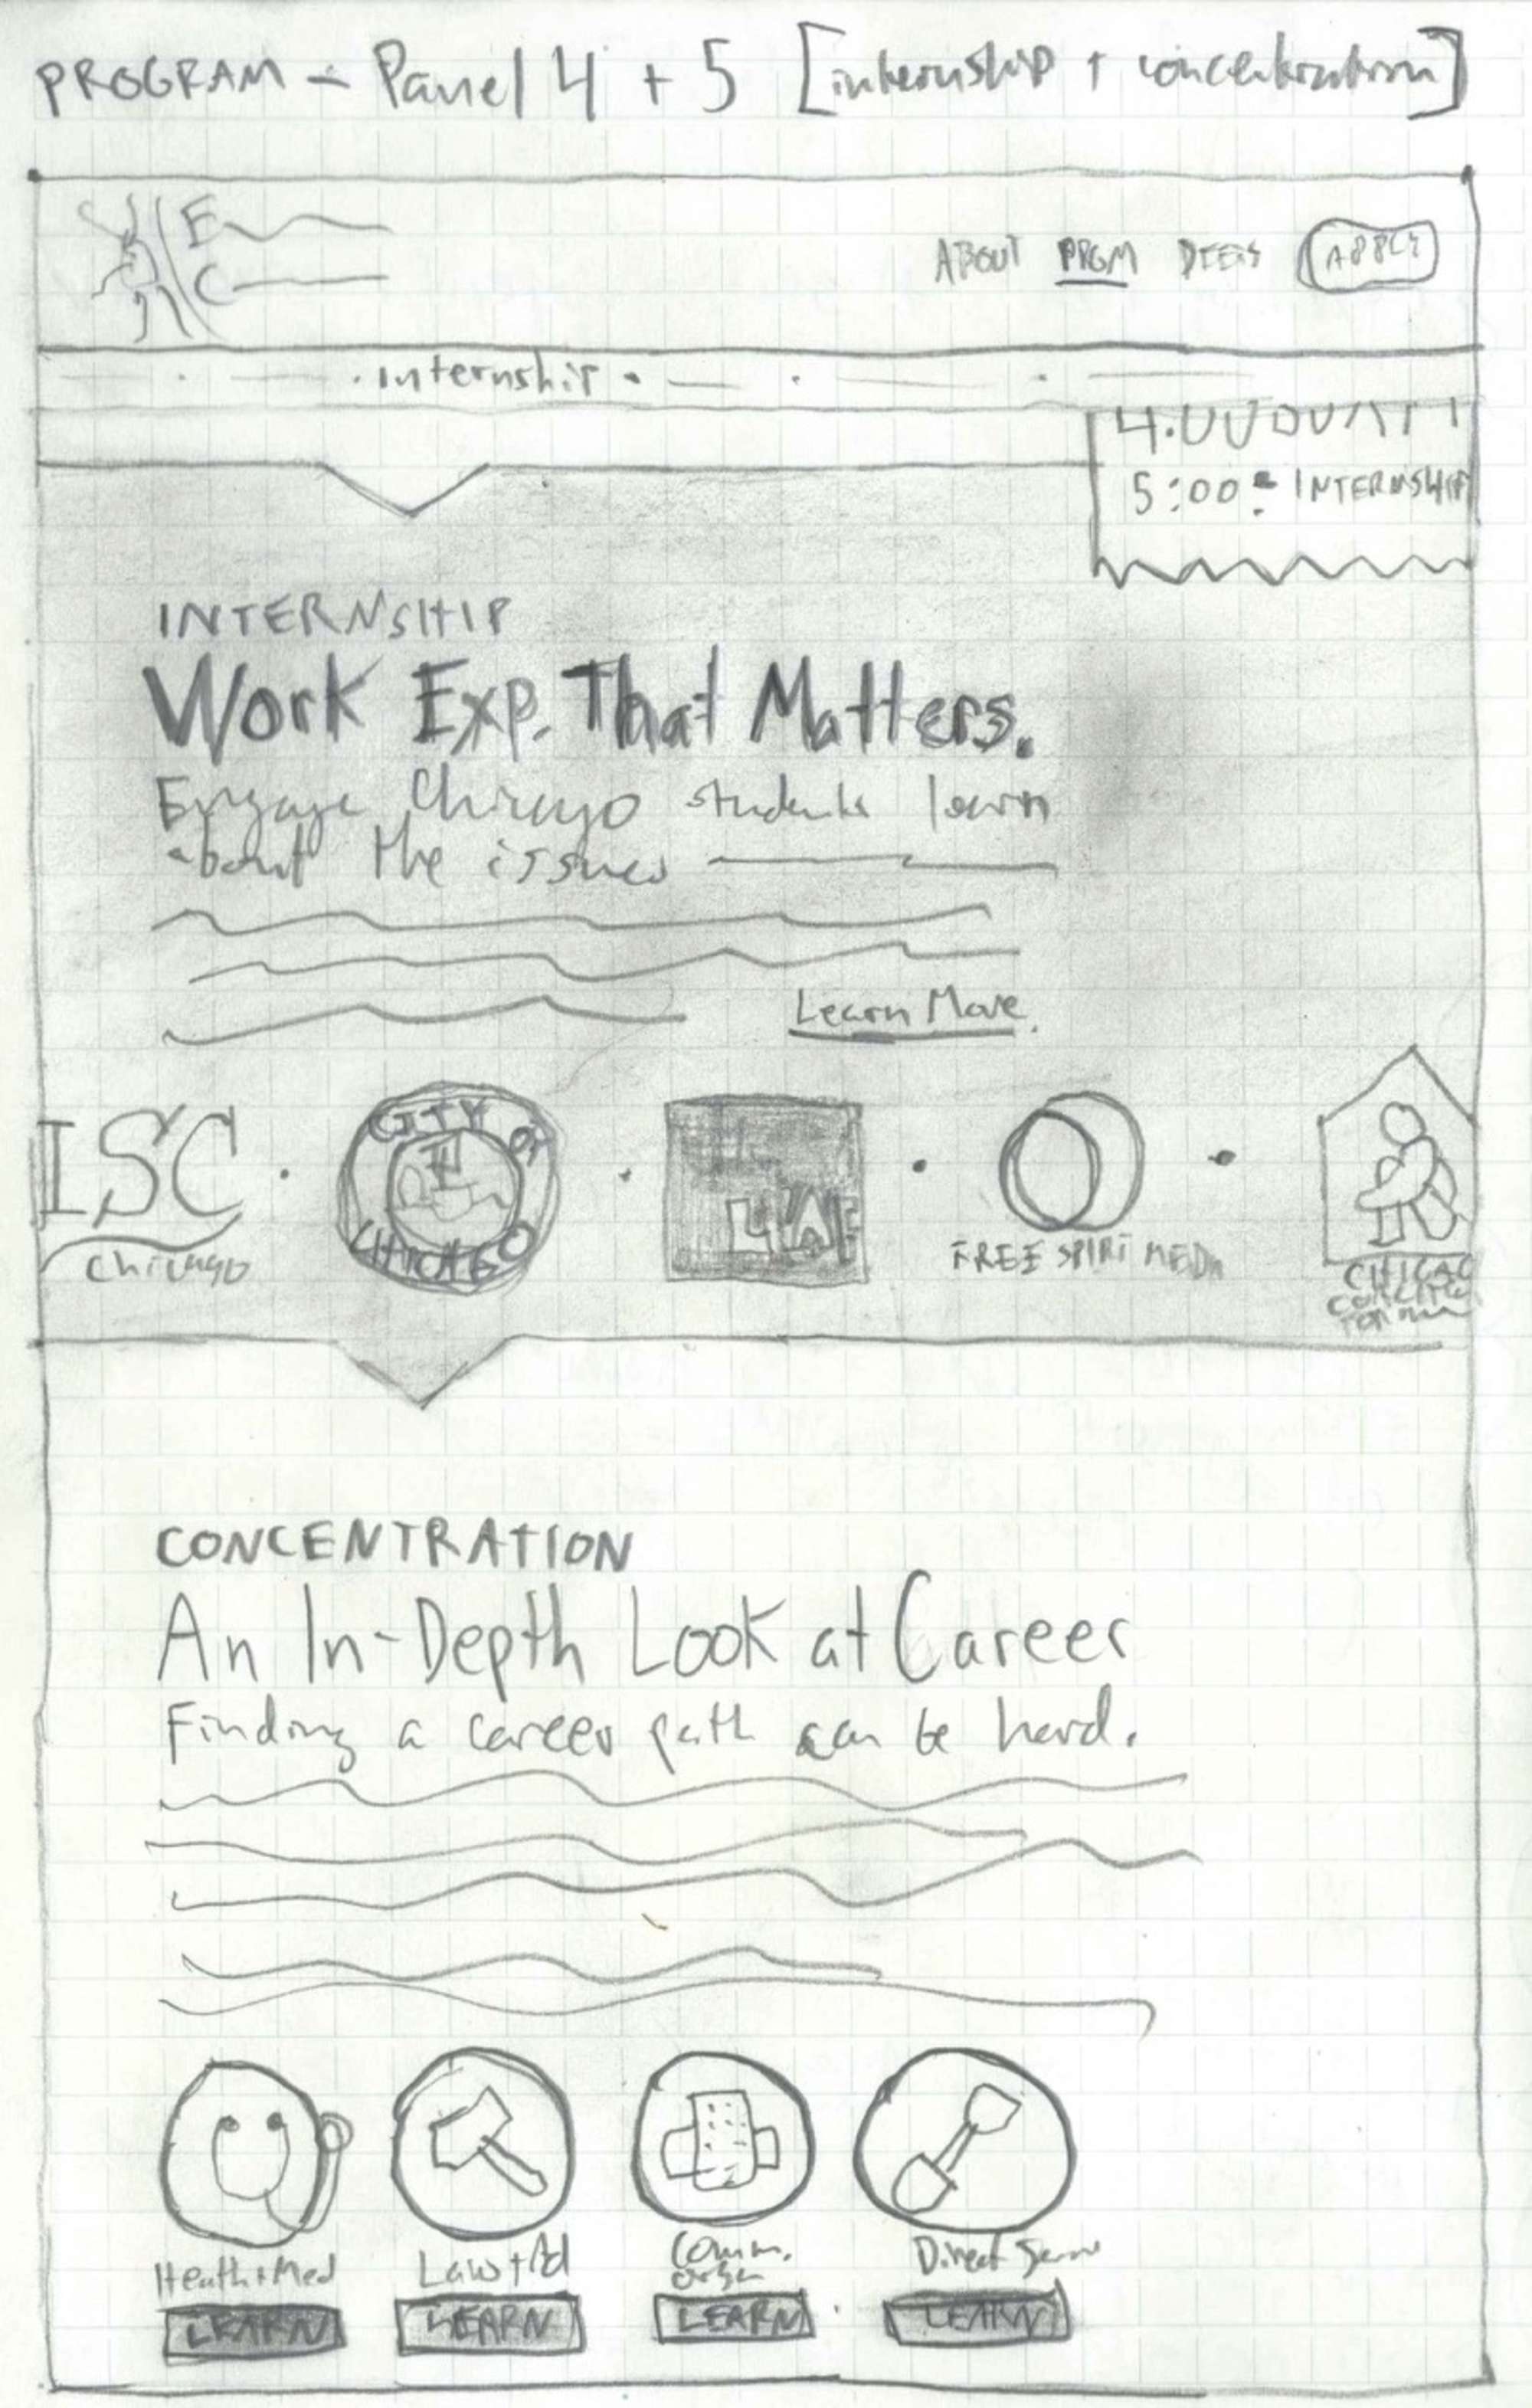 PROGRAM - Panel 4 + 5 [internship + concentration]
E
C
ABOUT PRGM APPLY
· internship ·
5:00 - INTERNSHIP
INTERNSHIP
Work Exp. That Matters.
Engage Chicago students learn
about the issues
Learn More
ISC
Chicago
CITY OF
CHICAGO
FREE SPIRIT MEDIA
CONCENTRATION
An In-Depth Look at Career
Finding a career path can be hard.
Health + Med
Law + Ad
Comm.
Direct
LEARN
LEARN
LEARN
LEARN